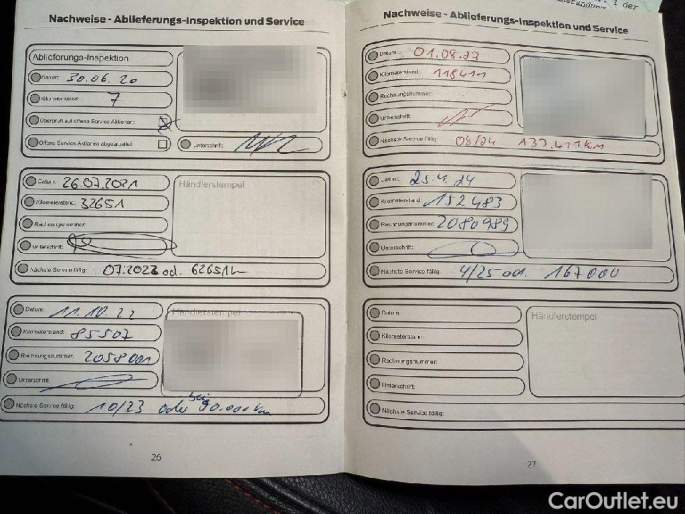 Nachweise - Ablieferungs-Inspektion und Service
Ablieferungs-Inspektion
Datum: 30.06.20
Kilometerstand: 7
Überprüft auf offene Service Aktionen:
Offene Service Aktionen abgearbeitet:
Unterschrift:
Datum: 26.07.2021
Kilometerstand: 32651
Rechnungsnummer:
Unterschrift:
Händlerstempel
Nächste Service fällig: 07.2023 od. 62651
Datum: 11.10.22
Kilometerstand: 85507
Rechnungsnummer: 2058001
Unterschrift:
Händlerstempel
Nächste Service fällig: 10/23 oder bei 90.000 km
26
Nachweise - Ablieferungs-Inspektion und Service
Datum: 01.08.23
Kilometerstand: 118411
Rechnungsnummer:
Unterschrift:
Nächste Service fällig: 08/24
Datum: 25.4.24
Kilometerstand: 152483
Rechnungsnummer: 2080989
Unterschrift:
Nächste Service fällig: 4/25 od. 167000
Datum:
Kilometerstand:
Rechnungsnummer:
Unterschrift:
Händlerstempel
Nächste Service fällig:
27
CarOutlet.eu